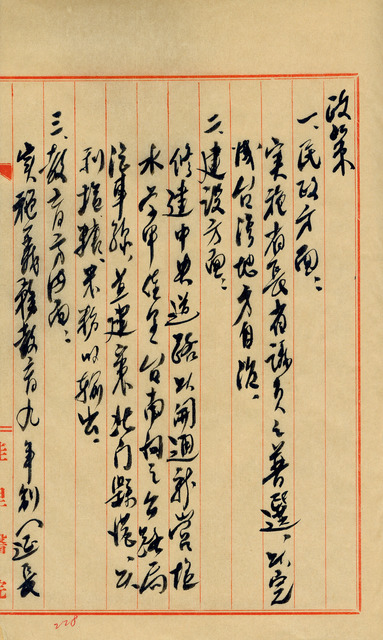 政策
一、民政方面：
實施省長省議員之普選，以完
成台灣地方自治。
二、建設方面：
修建中央道路以開通新營塩
水學甲佳里台南間之公路局
汽車線，並建築北門縣港，以
利塩糖米物的輸出。
三、教育方面：
實施義務教育九年制（延長
佳里醫院
228